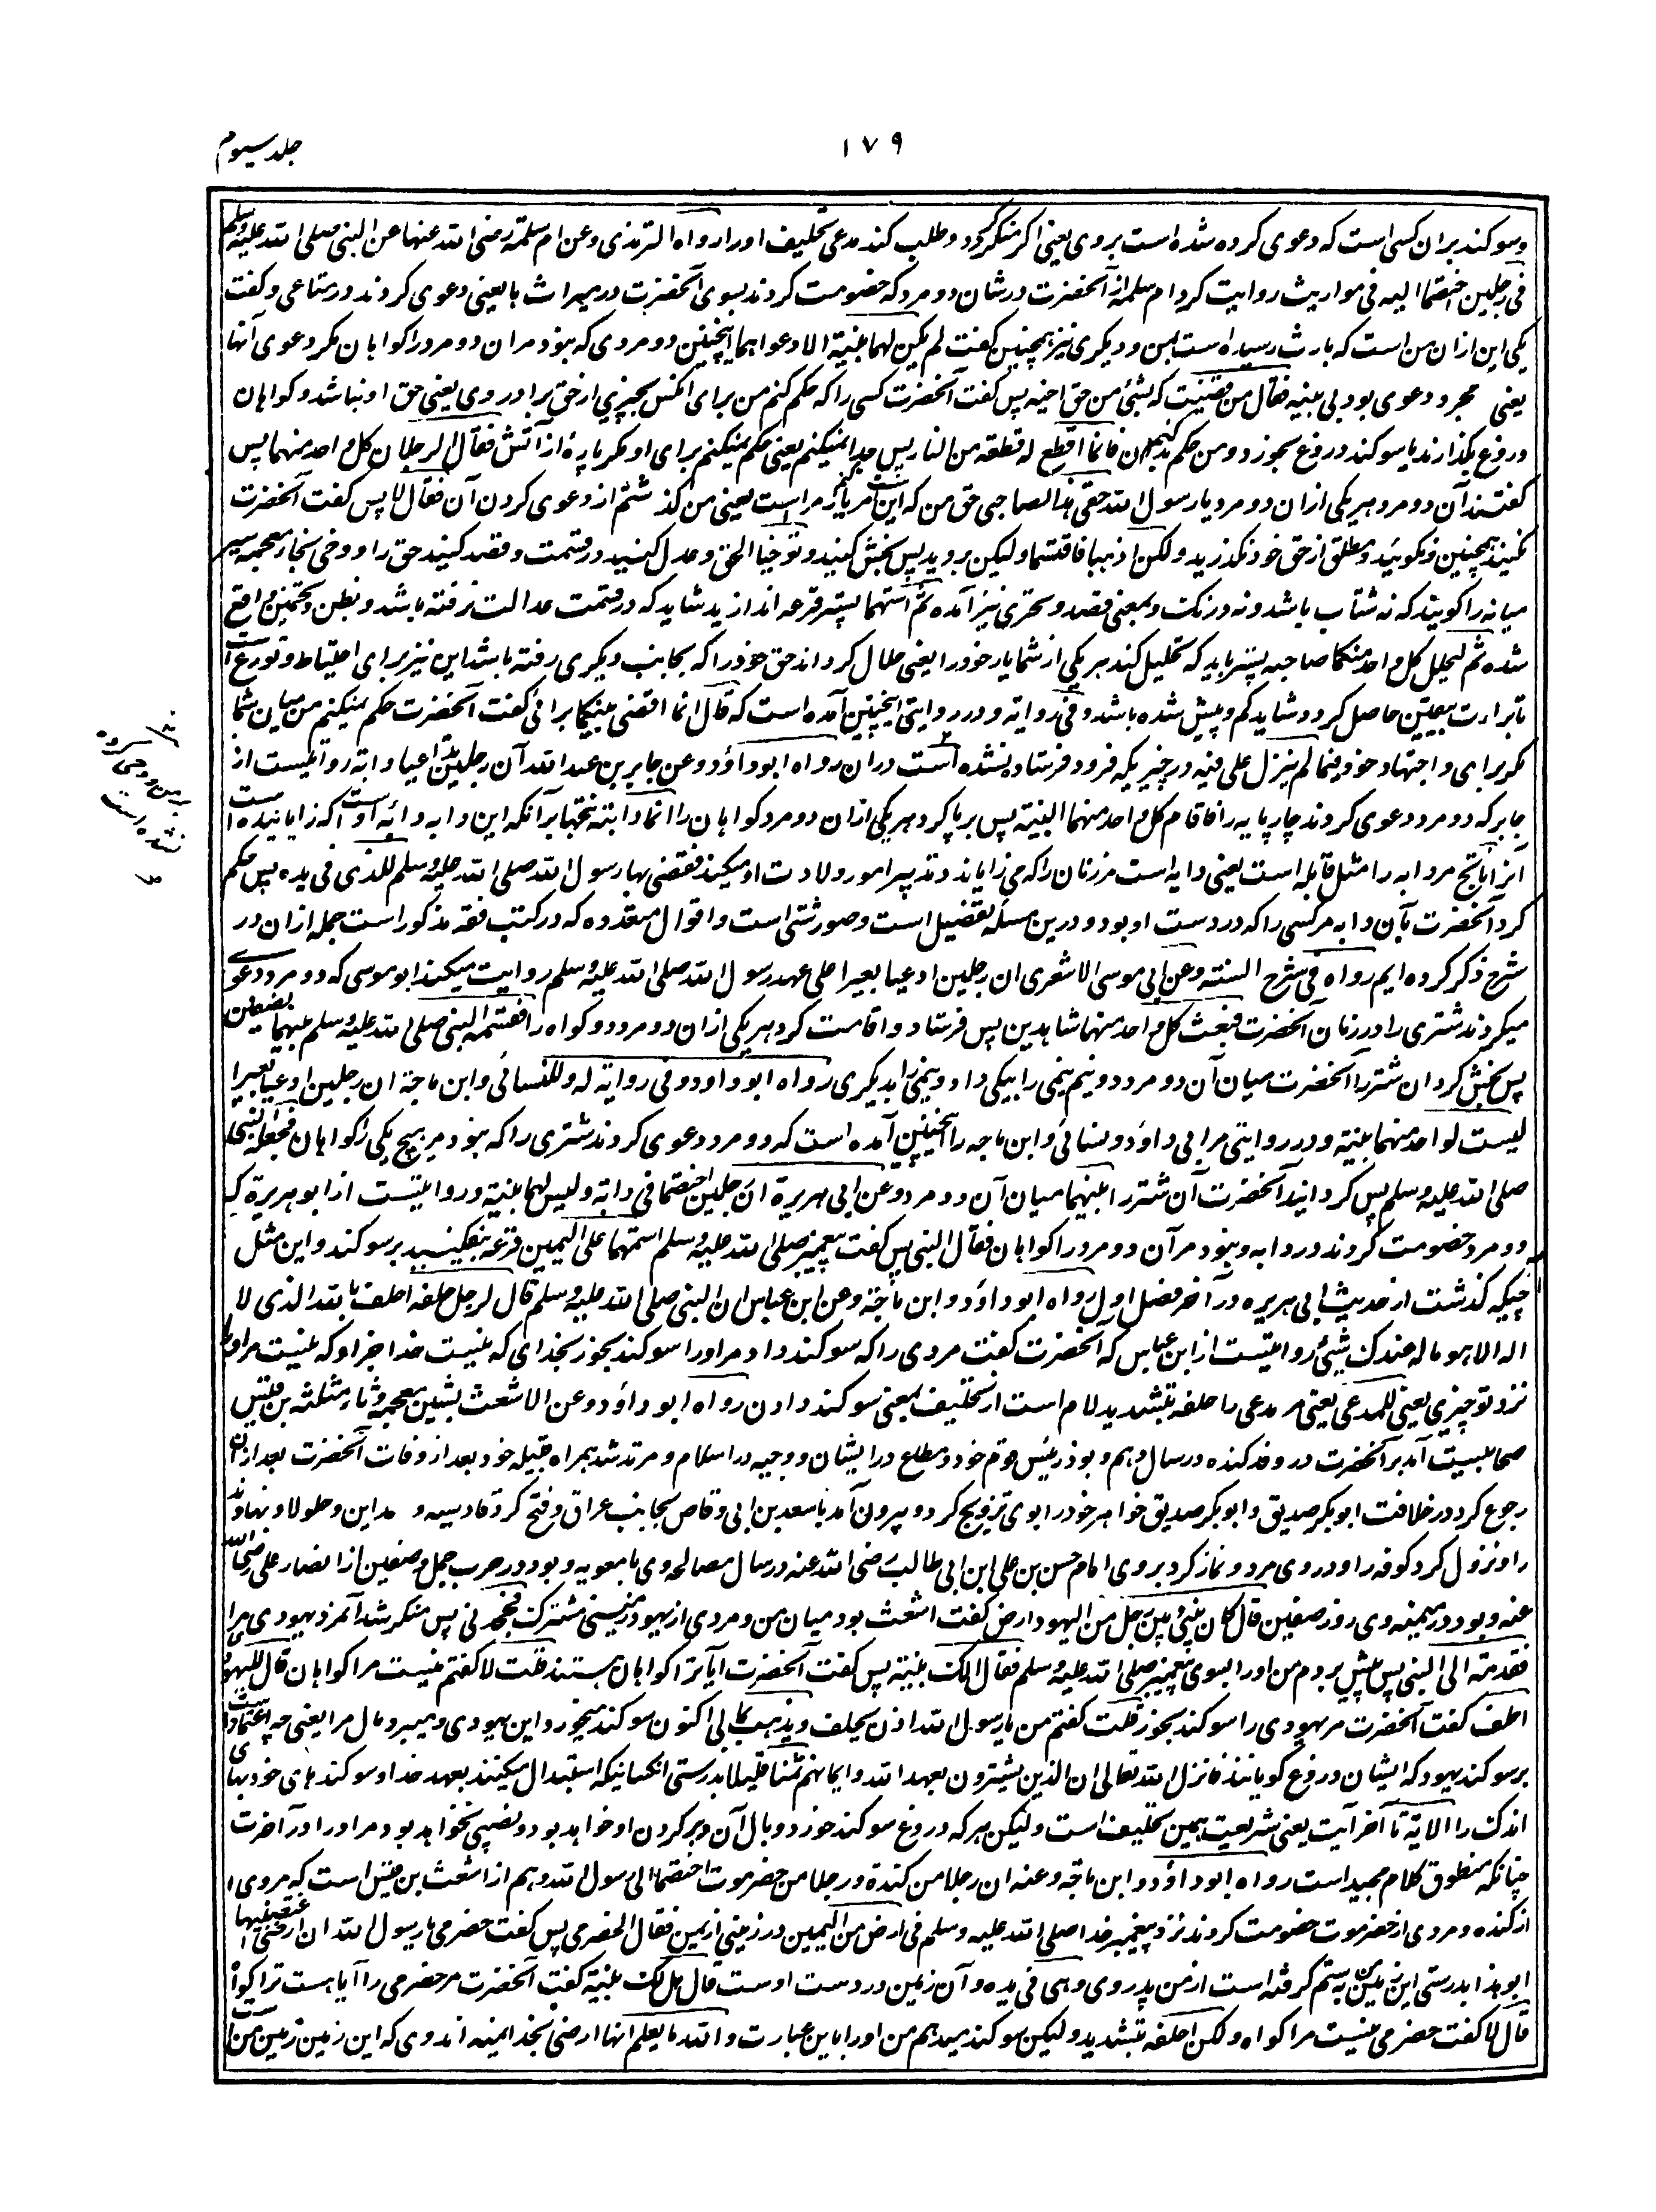 ۱۷۹
جلد سیوم
وسوکند بران کسی است که دعوی کرده شده است بر وی یعنی اکر منکر کردد و طلب کند مدعی تحلیف او را رواه الترمذی وعن ام سلمة رضی الله عنها عن النبی صلی الله علیه وسلم
فی رجلین اختصما الیه فی مواریث روایت کرد ام سلمه از آنحضرت در شان دو مرد که خصومت کردند بسوی آنحضرت در میراث ها یعنی دعوی کردند در متاعی و کفت
یکی این ازان من است که بارث رسیده است بمن و دیکری نیز همچنین کفت لم یکن لهما بنیة الا دعواهما اینچنین دو مردی که نبود مران دو مرد را کواهان مکر دعوی آنها
یعنی مجرد دعوی بود بی بینه فقال من قضیت له بشئ من حق اخیه پس کفت آنحضرت کسی را که حکم کنم من برای آنکس بچیزی از حق برادر وی یعنی حق او نباشد و کواهان
دروغ بکذارند یا سوکند دروغ بخورد و من حکم کنم بدان فانما اقطع له قطعة من النار پس جدا نمیکنم یعنی حکم نمیکنم برای او مکر پاره از آتش فقال الرجلان کل واحد منهما پس
کفتند آن دو مرد هر یکی ازان دو مرد یا رسول الله حقی هذا لصاحبی حق من که این است مر یار مراست یعنی من کذشتم از دعوی کردن آن فقال لا پس کفت آنحضرت
نکنید همچنین و نکوئید و مطلق از حق خود نکذرید ولکن اذهبا فاقتسما ولیکن بروید پس بخش کنید وتوخیا الحق و عدل کنید در قسمت و قصد کنید حق را و وخی بخاء معجمه سیر
میانه را کویند که نه شتاب باشد و نه درنکت و بمعنی قصد و تحری نیز آمده ثم استهما پستر قرعه اندازید شاید که در قسمت عدالت نرفته باشد و بظن و تخمین واقع
شده ثم لیحلل کل واحد منکما صاحبه پستر باید که تحلیل کند هر یکی از شما یار خود را یعنی حلال کرداند حق خود را که بجانب دیکری رفته باشد این نیز برای احتیاط و تورع است
تا براءت بیقین حاصل کردد و شاید کم و بیش شده باشد وفی روایة و در روایتی اینچنین آمده است که قال انما اقضی بینکما برائی کفت آنحضرت حکم نمیکنم من میان شما
مکر برای و اجتهاد خود فیما لم ینزل علی فیه در چیزیکه فرود فرستاده نشده است دران رواه ابو داؤد وعن جابر بن عبد الله ان رجلین تداعیا دابة روایتست از
جابر که دو مرد دعوی کردند چارپایه را فاقام کل واحد منهما البینة پس برپا کرد هر یکی ازان دو مرد کواهان را انها دابته نتجها بر آنکه این دابه دابه اوست که زایانیده است
آنرا ناتج مر دابه را مثل قابله است یعنی دایه است مر زنان را که می زایاند و تدبیر امور ولادت او میکند فقضی بها رسول الله صلی الله علیه وسلم للذی فی یده پس حکم
کرد آنحضرت بآن دابه مر کسی را که در دست او بود و درین مسئله تفضیل است و صور شتی است و اقوال متعدده که در کتب فقه مذکور است جمله ازان در
شرح ذکر کرده ایم رواه فی شرح السنة وعن ابی موسی الاشعری ان رجلین ادعیا بعیرا علی عهد رسول الله صلی الله علیه وسلم روایت میکند ابو موسی که دو مرد دعوی
میکردند شتری را در زمان آنحضرت فبعث کل واحد منهما شاهدین پس فرستاد و اقامت کرد هر یکی ازان دو مرد دو کواه را فقسمه النبی صلی الله علیه وسلم بینهما نصفین
پس بخش کرد ان شتر را آنحضرت میان آن دو مرد دو نیم نیمی را بیکی داد و نیمی را بدیکری رواه ابو داود وفی روایة له وللنسائی وابن ماجة ان رجلین ادعیا بعیرا
لیست لواحد منهما بنیة و در روایتی مر ابی داؤد و نسائی و ابن ماجه را اینچنین آمده است که دو مرد دعوی کردند شتری را که نبود مر هیچ یکی را کواهان فجعله النبی
صلی الله علیه وسلم پس کردانید آنحضرت آن شتر را بینهما میان آن دو مرد وعن ابی هریرة ان رجلین اختصما فی دابة ولیس لهما بنیة و روایتست از ابو هریرة که
دو مرد خصومت کردند در دابه و نبود مر آن دو مرد را کواهان فقال النبی پس کفت پیغمبر صلی الله علیه وسلم استهما علی الیمین قرعه بفکنید بر سوکند و این مثل
چیزیکه کذشت از حدیث ابی هریره در آخر فصل اول رواه ابو داؤد و ابن ماجة وعن ابن عباس ان النبی صلی الله علیه وسلم قال لرجل حلفه احلف بالله الذی لا
اله الا هو ماله عندک شیئ روایتست از ابن عباس که آنحضرت کفت مردی را که سوکند داد مر او را سوکند بخور بخدای که نیست خدا جز او که نیست مر او را
نزد تو چیزی یعنی للمدعی یعنی مر مدعی را حلفه بتشدید لام است از تحلیف بمعنی سوکند دادن رواه ابو داؤد وعن الاشعث بشین معجمه و ثاء مثلثه بن قیس
صحابیست آمد بر آنحضرت در وفد کنده در سال دهم و بود رئیس قوم خود و مطاع در ایشان و وجیه در اسلام و مرتد شد همراه قبیله خود بعد از وفات آنحضرت بعد ازان
رجوع کرد در خلافت ابو بکر صدیق و ابو بکر صدیق خواهر خود را بوی تزویج کرد و بیرون آمد با سعد بن ابی وقاص بجانب عراق و فتح کرد قادسیه و مداین و جلولا و نهاوند
را و نزول کرد کوفه را و در وی مرد و نماز کرد بر وی امام حسن بن علی ابن ابی طالب رضی الله عنه در سال مصالحه وی با معویه و بود در حرب جمل و صفین از انصار علی رضی الله
عنه و بود در میمنه وی روز صفین قال کان بینی وبین رجل من الیهود ارض کفت اشعث بود میان من و مردی از یهود زمینی مشترک فجحدنی پس منکر شد آنمرد یهودی مرا
فقدمته الی النبی پس پیش بردم من او را بسوی پیغمبر صلی الله علیه وسلم فقال الک بنیة پس کفت آنحضرت ایا ترا کواهان هستند قلت لا کفتم نیست مرا کواهان قال للیهودی
احلف کفت آنحضرت مر یهودی را سوکند بخور قلت کفتم من یا رسول الله اذن یحلف ویذهب بمالی اکنون سوکند میخورد این یهودی و میبرد مال مرا یعنی چه اعتماد است
بر سوکند یهود که ایشان دروغ کویانند فانزل الله تعالی ان الذین یشترون بعهد الله وایمانهم ثمنا قلیلا بدرستی آنکسانیکه استبدال میکنند بعهد خدا و سوکندهای خود بهای
اندک را الایة تا آخر آیت یعنی شریعت همین تحلیف است ولیکن هر که دروغ سوکند خورد وبال آن بر کردن او خواهد بود و نصیبی نخواهد بود مر او را در آخرت
چنانکه منطوق کلام مجید است رواه ابو داؤد و ابن ماجة وعنه ان رجلا من کندة ورجلا من حضرموت اختصما الی رسول الله و هم از اشعث بن قیس است که مردی
از کنده و مردی از حضرموت خصومت کردند نزد پیغمبر خدا صلی الله علیه وسلم فی ارض من الیمین در زمینی از یمن فقال الحضرمی پس کفت حضرمی یا رسول الله ان ارضی اغتصبنیها
ابو هذا بدرستی این زمین من بستم کرفته است از من پدر وی وهی فی یده و آن زمین در دست اوست قال هل لک بنیة کفت آنحضرت مر حضرمی را آیا هست ترا کواه
قال لا کفت حضرمی نیست مرا کواه ولکن احلفه بتشدید ولیکن سوکند میدهم من او را باین عبارت والله ما یعلم انها ارضی بخدا نمیداند وی که این زمین زمین من است